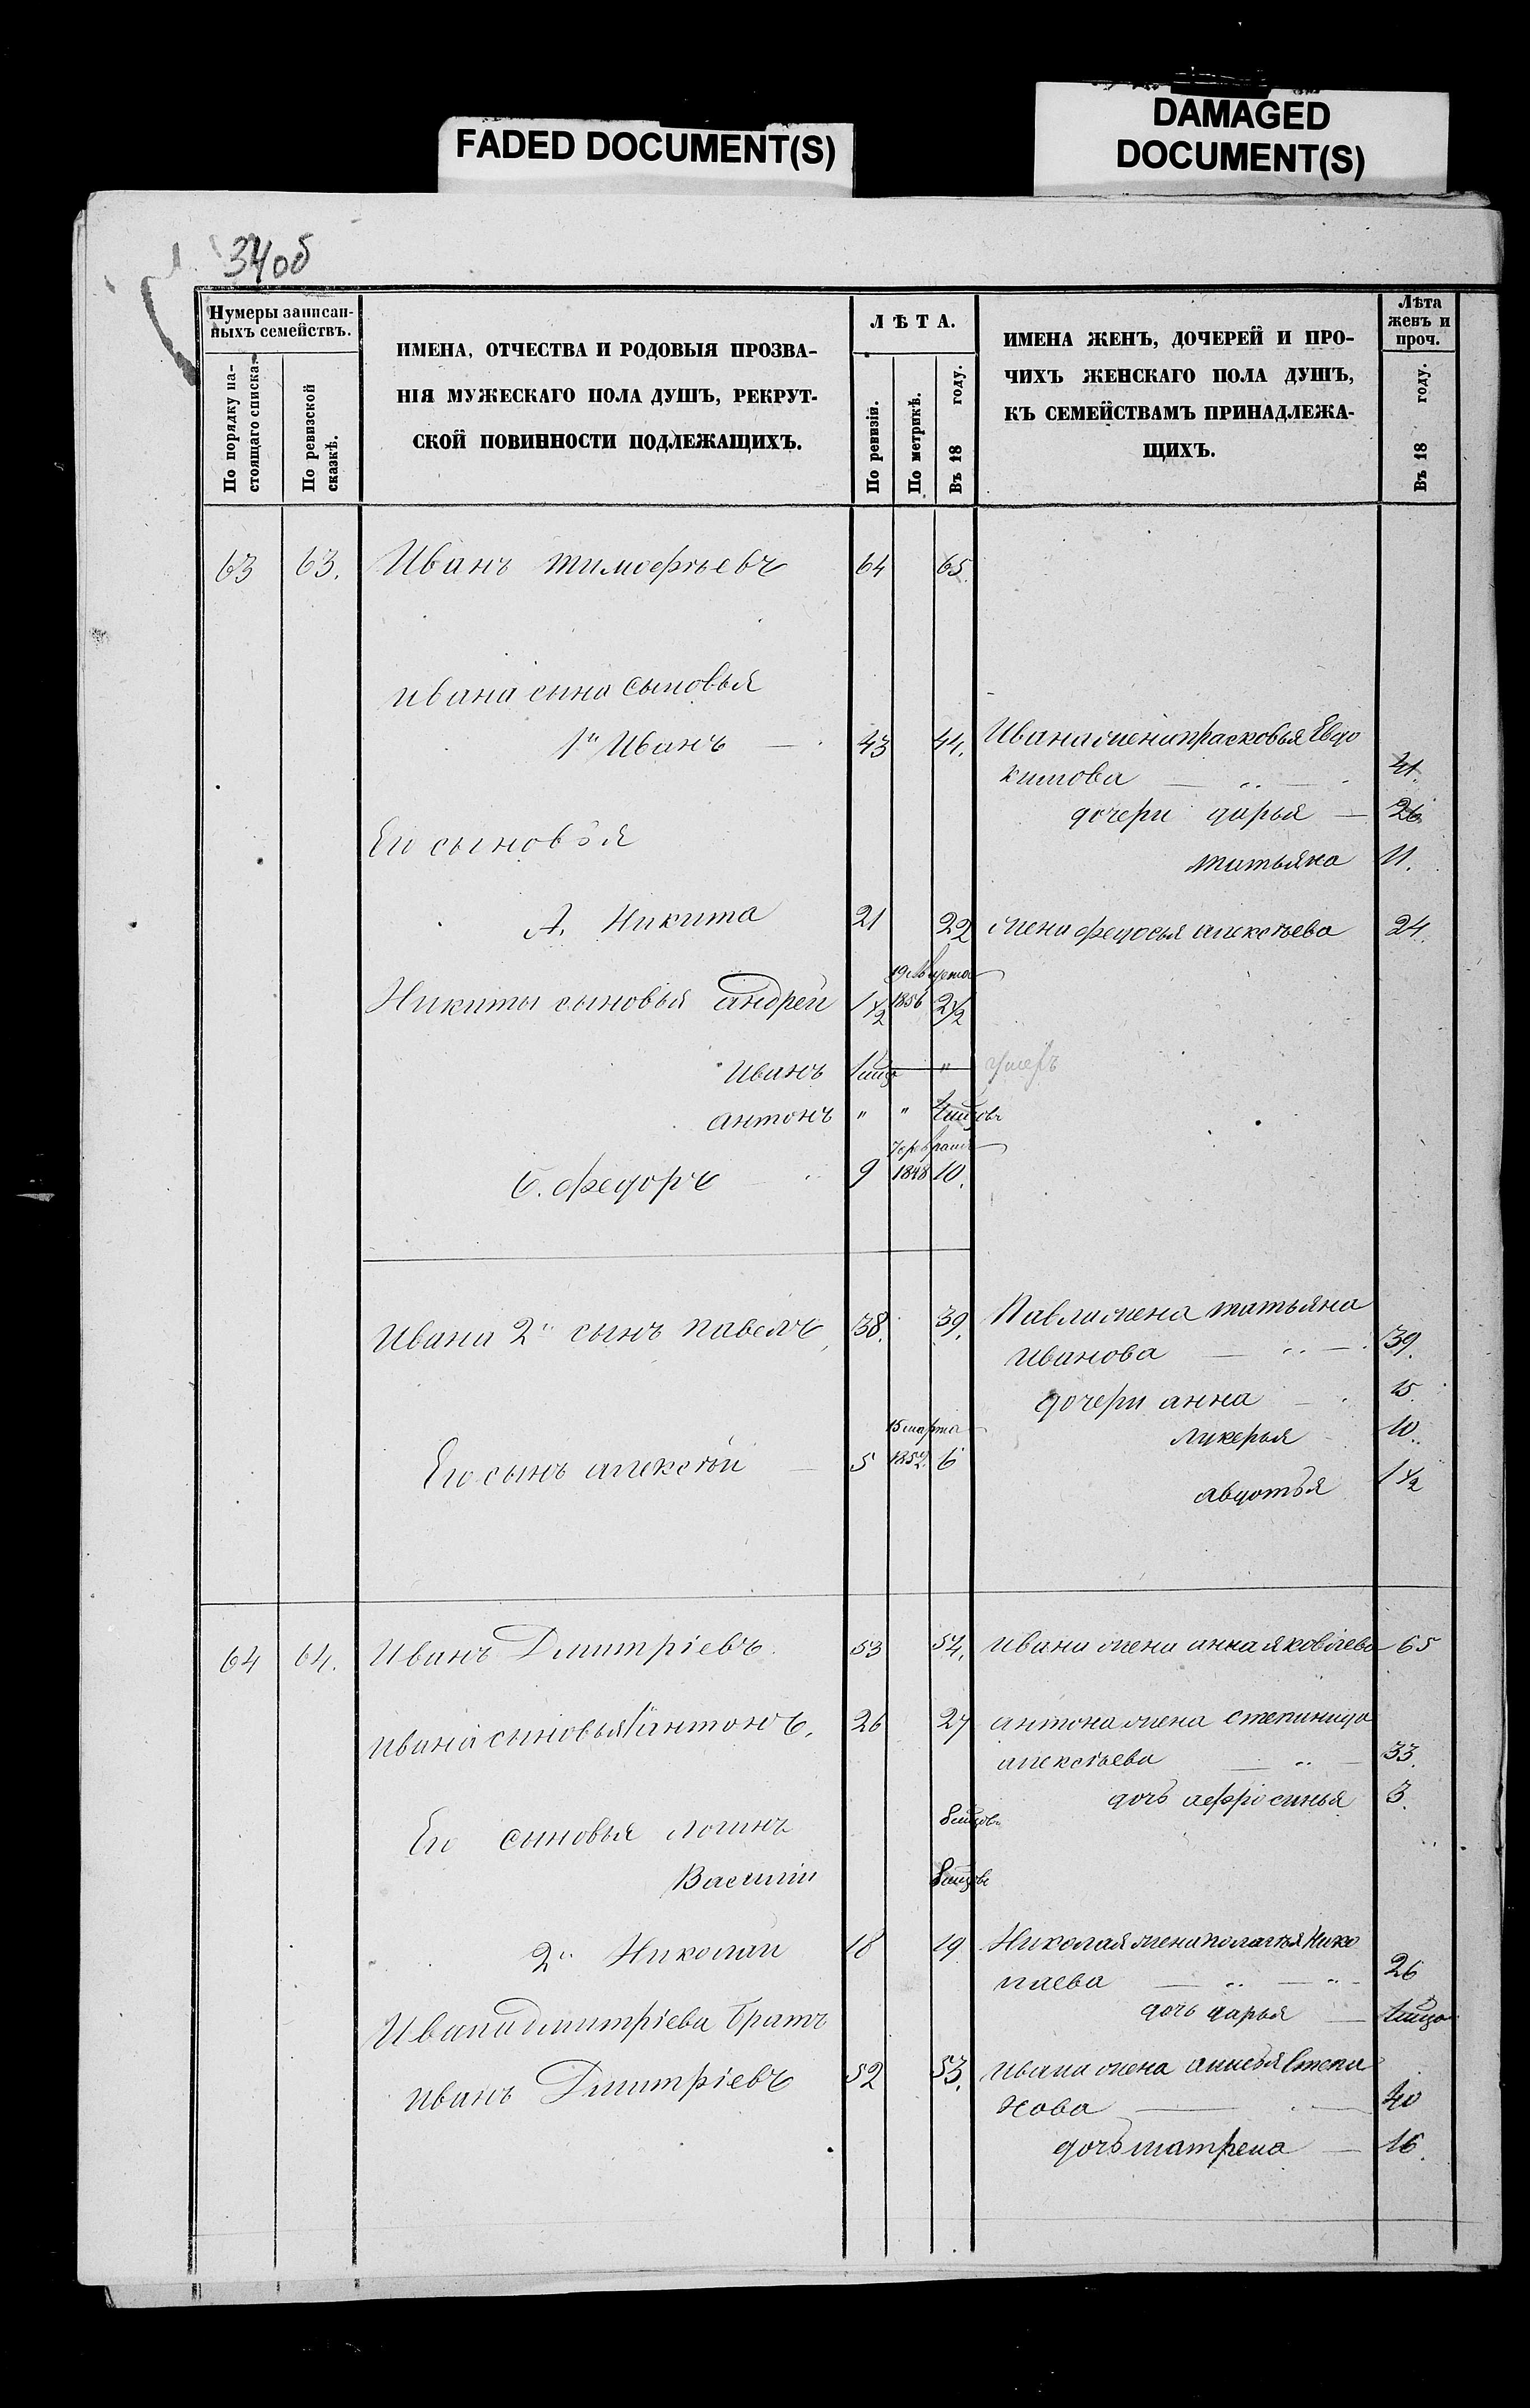 FADED DOCUMENT(S)
DAMAGED
DOCUMENT(S)
34об
Нумеры записан-
ныхъ семействъ.
По порядку на-
стоящаго списка
По ревизской
сказкѣ.
ИМЕНА, ОТЧЕСТВА И РОДОВЫЯ ПРОЗВА-
НІЯ МУЖЕСКАГО ПОЛА ДУШЪ, РЕКРУТ-
СКОЙ ПОВИННОСТИ ПОДЛЕЖАЩИХЪ.
ЛѢТА.
По ревизіи.
По метрикѣ.
Въ 18 году.
ИМЕНА ЖЕНЪ, ДОЧЕРЕЙ И ПРО-
ЧИХЪ ЖЕНСКАГО ПОЛА ДУШЪ,
КЪ СЕМЕЙСТВАМЪ ПРИНАДЛЕЖА-
ЩИХЪ.
Лѣта
женъ и
проч.
Въ 18 году.
63 63. Иванъ тимофѣевъ 64 65.
ивана сина сыновья
1й Иванъ 43 44. Ивана жена прасковья Евдо
кимова 41.
дочери дарья 26
Его сыновья
татьяна 11.
А. Никита 21 22 жена федосья алексѣева 24.
19 августа
Никиты сыновья андрей 1 1/2 1856 2 1/2
Иванъ 1 мцъ " умеръ
антонъ " " мцовъ
7 февраля
б. федоръ 9 1848 10.
Ивана 2й сынъ павелъ 38. 39. Павла жена татьяна
Иванова 39.
дочери анна 15.
15 марта
лукерья 10.
Его сынъ алексѣй 5 1852 6
авдотья 1 1/2
64 64. Иванъ Дмитріевъ. 53 54. Ивана жена анна яковлева 65
ивана сыновья 1й антонъ. 26 27 антона жена степанида
алексѣева 33.
дочь афросинья 3.
Его сыновья логинъ 8 мцовъ
Василій 8 мцовъ
2й Николай 18 19 Николая жена полагѣя Нико
лаева 26
дочь дарья мцо
Ивана дмитріева братъ
Иванъ Дмитріевъ 52 53. Ивана жена анисья Степа
нова 40
дочь матрена 16.